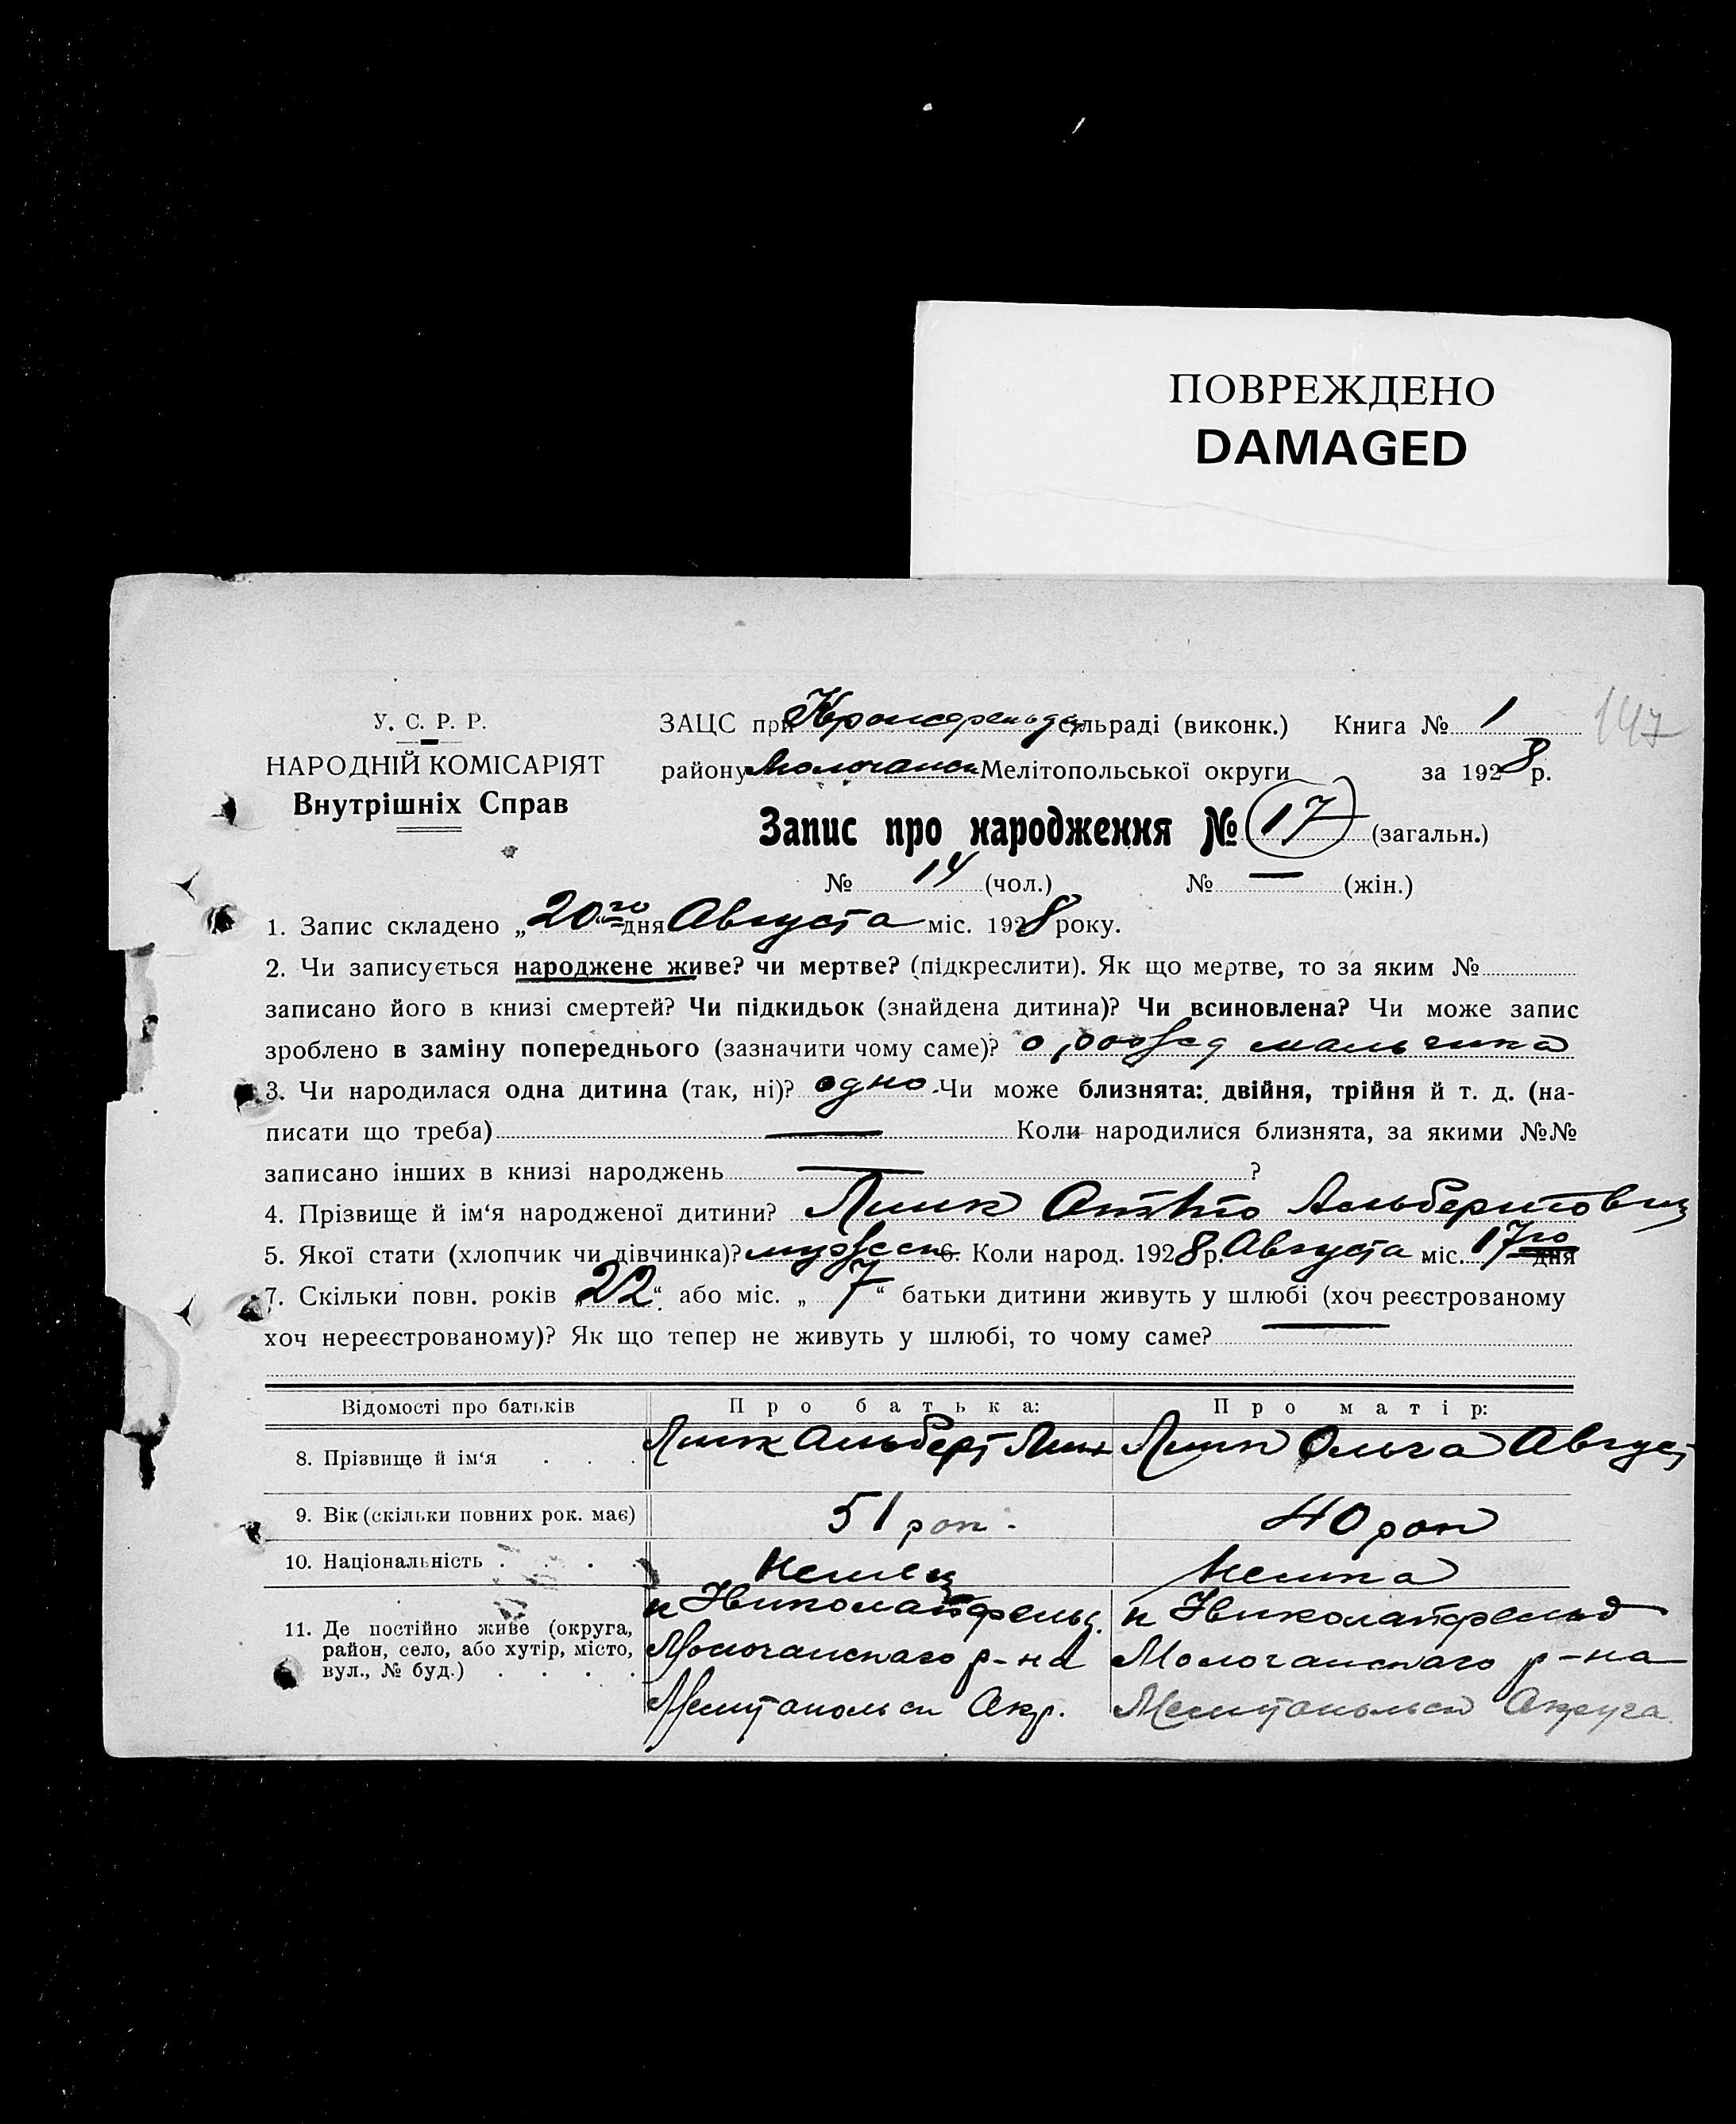 ПОВРЕЖДЕНО
DAMAGED
147
У. С. Р. Р.
НАРОДНІЙ КОМІСАРІЯТ
Внутрішніх Справ
ЗАЦС при Кронсфельд сільраді (виконк.) Книга № 1
району Молочанск Мелітопольської округи за 1928 р.
Запис про народження № 17 (загальн.)
№ 14 (чол.) № — (жін.)
1. Запис складено „20го“ дня Августа міс. 1928 року.
2. Чи записується народжене живе? чи мертве? (підкреслити). Як що мертве, то за яким №
записано його в книзі смертей? Чи підкидьок (знайдена дитина)? Чи всиновлена? Чи може запис
зроблено в заміну попереднього (зазначити чому саме)? мальчика
3. Чи народилася одна дитина (так, ні)? одно Чи може близнята: двійня, трійня й т. д. (на-
писати що треба) — Коли народилися близнята, за якими №№
записано інших в книзі народжень — ?
4. Прізвище й ім‘я народженої дитини? Линк Отто Альбертович
5. Якої стати (хлопчик чи дівчинка)? мужск 6. Коли народ. 1928 р. Августа міс. 17го дня
7. Скільки повн. років „22“ або міс. „7“ батьки дитини живуть у шлюбі (хоч реєстрованому
хоч нереєстрованому)? Як що тепер не живуть у шлюбі, то чому саме? —
Відомості про батьків Про батька: Про матір:
8. Прізвище й ім‘я . . . Линк Альберт Линк Ольга Август
9. Вік (скільки повних рок. має) 51 рок. 40 рок
10. Національність . . . . Немец Немка
11. Де постійно живе (округа, район, село, або хутір, місто, вул., № буд.) . . . .
к Николайфельд. к Николайфельд
Молочанскаго р-на Молочанскаго р-на
Мелитопольск Окр. Мелитопольск Округа